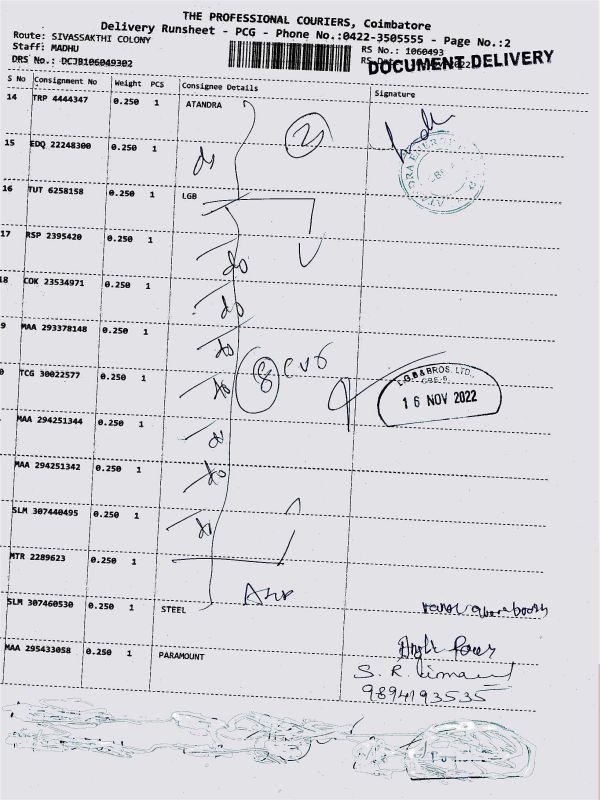 THE PROFESSIONAL COURIERS, Coimbatore
Delivery Runsheet - PCG - Phone No.:0422-3505555 - Page No.:2
Route: SIVASSAKTHI COLONY
Staff: MADHU
RS No.: 1060493
DRS No.: DCJB106049302
DOCUMENT DELIVERY
S No Consignment No Weight PCS Consignee Details Signature
14 TRP 4444347 0.250 1 ATANDRA
15 EDQ 22248300 0.250 1 do
16 TUT 6258158 0.250 1 LGB
17 RSP 2395420 0.250 1 do
18 COK 23534971 0.250 1 do
9 MAA 293378148 0.250 1 do
0 TCG 30022577 0.250 1 do
8
L.G.B & BROS. LTD.
CBE-6.
16 NOV 2022
MAA 294251344 0.250 1 do
MAA 294251342 0.250 1 do
SLM 307440495 0.250 1 do
MTR 2289623 0.250 1
SLM 307460530 0.250 1 STEEL
MAA 295433058 0.250 1 PARAMOUNT
9894193535